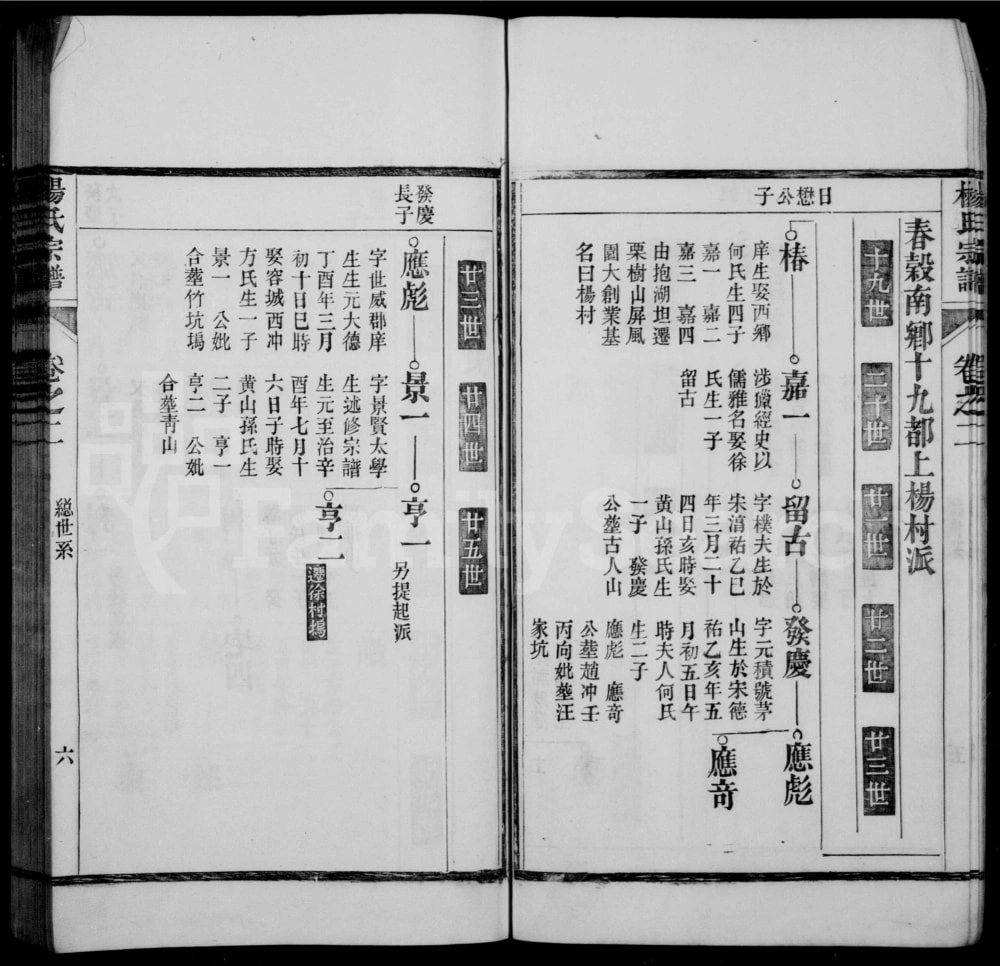 楊氏宗譜
卷之二
春穀南鄉十九都上楊村派
十九世
二十世
廿一世
廿二世
廿三世
日懋公子
椿
庠生娶西鄉
何氏生四子
嘉一 嘉二
嘉三 嘉四
由抱湖坦遷
栗樹山屏風
圖大創業基
名曰楊村
嘉一
涉獵經史以
儒雅名娶徐
氏生一子
留古
留古
字樸夫生於
宋淳祐乙巳
年三月二十
四日亥時娶
黃山孫氏生
一子 發慶
公塟古人山
發慶
字元積號茅
山生於宋德
祐乙亥年五
月初五日午
時夫人何氏
生二子
應彪 應奇
公塟趙冲壬
丙向妣塟汪
家坑
應彪
應奇
廿三世
廿四世
廿五世
發慶
長子
應彪
字世威郡庠
生生元大德
丁酉年三月
初十日巳時
娶容城西冲
方氏生一子
景一 公妣
合塟竹坑塢
景一
字景賢太學
生述修宗譜
生元至治辛
酉年七月十
六日子時娶
黃山孫氏生
二子 亨一
亨二 公妣
合塟靑山
亨一
另提起派
亨二
遷徐村塢
楊氏宗譜
卷之二
總世系
六